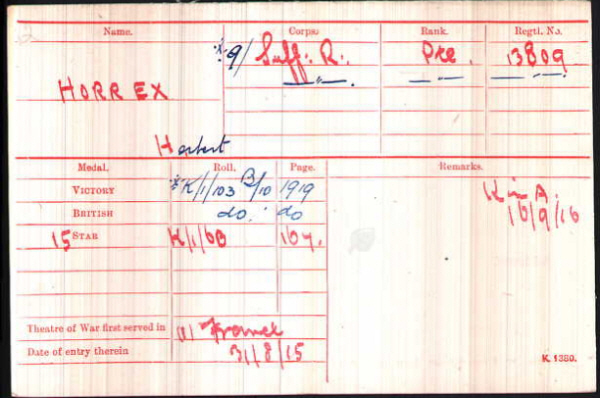 Name. Corps. Rank. Regtl. No.
9/ Suff: R. Pte 13809
HORREX — „ — — „ — — „ —
Herbert
Medal. Roll. Page. Remarks.
VICTORY K/1/103 B/10 1919 K in A.
BRITISH do. do 16/9/16
15 STAR K/1/6B 164.
Theatre of War first served in (1) France
Date of entry therein 31/8/15
K 1380.